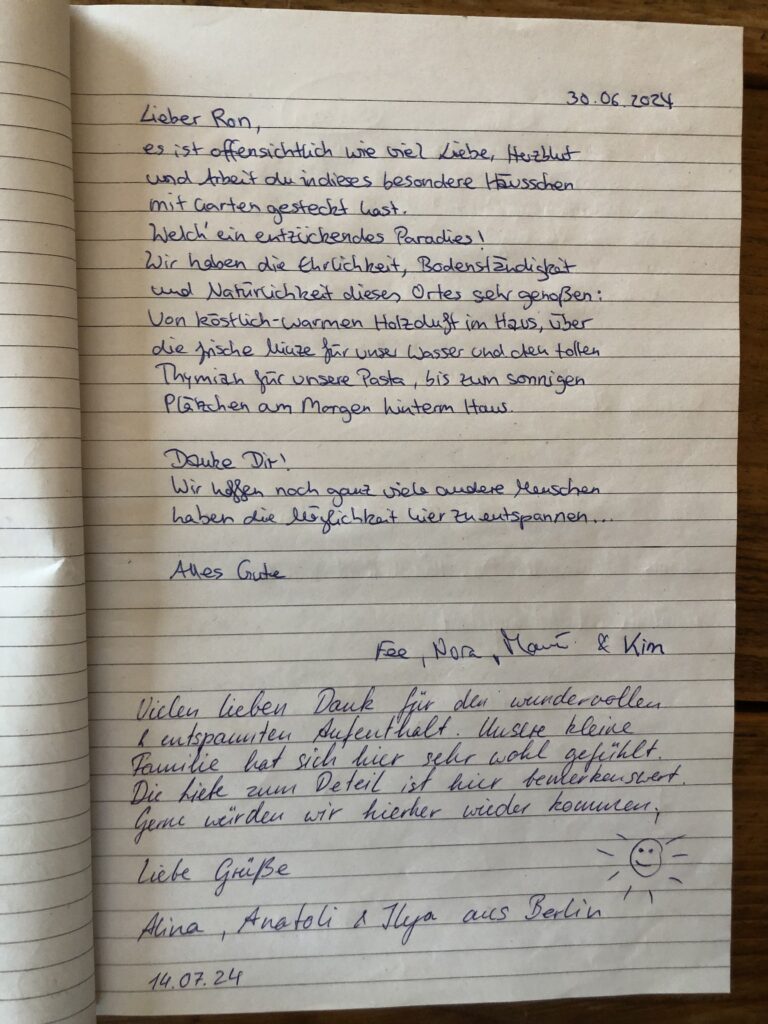 30.06.2024
Lieber Ron,
es ist offensichtlich wie viel Liebe, Herzblut
und Arbeit du in dieses besondere Häusschen
mit Garten gesteckt hast.
Welch' ein entzückendes Paradies!
Wir haben die Ehrlichkeit, Bodenständigkeit
und Natürlichkeit dieses Ortes sehr genoßen:
Von köstlich-warmen Holzduft im Haus, über
die frische Minze für unser Wasser und den tollen
Thymian für unsere Pasta, bis zum sonnigen
Plätzchen am Morgen hinterm Haus.
Danke Dir!
Wir hoffen noch ganz viele andere Menschen
haben die Möglichkeit hier zu entspannen...
Alles Gute
Fee, Nora, & Kim
Vielen lieben Dank für den wundervollen
& entspannten Aufenthalt. Unsere kleine
Familie hat sich hier sehr wohl gefühlt.
Die Liebe zum Deteil ist hier bemerkenswert.
Gerne würden wir hierher wieder kommen,
Liebe Grüße
Alina, Anatoli & Ilya aus Berlin
14.07.24